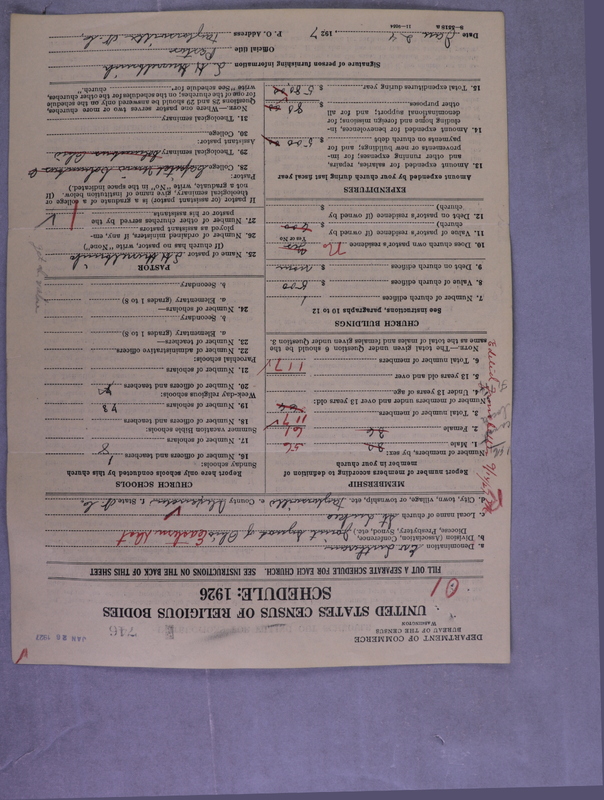 JAN 28 1927
DEPARTMENT OF COMMERCE
BUREAU OF THE CENSUS
WASHINGTON
746
UNITED STATES CENSUS OF RELIGIOUS BODIES
SCHEDULE: 1926
FILL OUT A SEPARATE SCHEDULE FOR EACH CHURCH. SEE INSTRUCTIONS ON THE BACK OF THIS SHEET
a. Denomination Ev. Lutheran
b. Division (Association, Conference, Diocese, Presbytery, Synod, etc.) Joint Synod of Ohio Eastern Dist
c. Local name of church St. Lukes
d. City, town, village, or township, etc. Taylorsville e. County Alexander f. State N.C.
MEMBERSHIP
Report number of members according to definition of member in your church
Number of members, by sex:
1. Male 56
2. Female 61
3. Total number of members 117
Number of members under and over 13 years old:
4. Under 13 years of age
5. 13 years old and over
6. Total number of members 117
NOTE.—The total given under Question 6 should be the same as the total of males and females given under Question 3.
CHURCH BUILDINGS
See Instructions, paragraphs 10 to 12
7. Number of church edifices 1
8. Value of church edifices $ 800
9. Debt on church edifices $ none
10. Does church own pastor's residence No
Yes or No
11. Value of pastor's residence (if owned by church) $
12. Debt on pastor's residence (if owned by church) $
EXPENDITURES
Amount expended by your church during last fiscal year
13. Amount expended for salaries, repairs, and other running expenses; for improvements or new buildings; and for payments on church debt $ 500
14. Amount expended for benevolences, including home and foreign missions; for denominational support; and for all other purposes $ 80
15. Total expenditures during year $ 580
CHURCH SCHOOLS
Report here only schools conducted by this church
Sunday schools: 1
16. Number of officers and teachers 8
17. Number of scholars
Summer vacation Bible schools:
18. Number of officers and teachers
19. Number of scholars
Week-day religious schools:
20. Number of officers and teachers
21. Number of scholars
Parochial schools:
22. Number of administrative officers
23. Number of teachers—
a. Elementary (grades 1 to 8)
b. Secondary
24. Number of scholars—
a. Elementary (grades 1 to 8)
b. Secondary
PASTOR
25. Name of pastor
(If church has no pastor, write "None")
26. Number of ordained ministers, if any, employed as assistant pastors
27. Number of other churches served by the pastor or his assistants 1
If pastor or assistant pastor is a graduate of a college or theological seminary, give name of institution below. (If not a graduate, write "No" in the space indicated.)
Pastor:
28. College Capital Univ. Columbus O
29. Theological seminary Columbus Ohio
Assistant pastor:
30. College
31. Theological seminary
NOTE.—Where one pastor serves two or more churches, Questions 28 and 29 should be answered only on the schedule for one of the churches; on the schedules for the other churches, write "See schedule for" church."
Signature of person furnishing information
Official title Pastor
P. O. Address Taylorsville N.C.
Date Jan 24, 1927